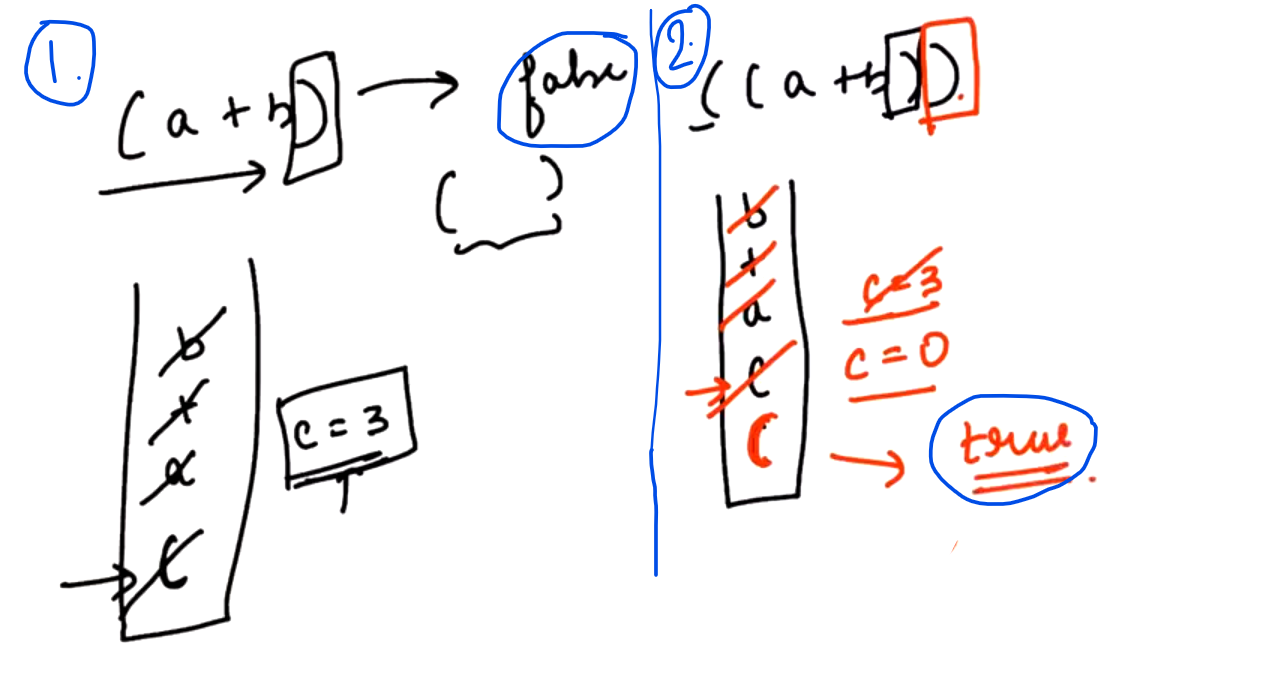 1.
(a + b) → false
( )
b
+
a
(
c = 3
2.
((a + b))
b
+
a
(
(
c = 3
c = 0
→ true